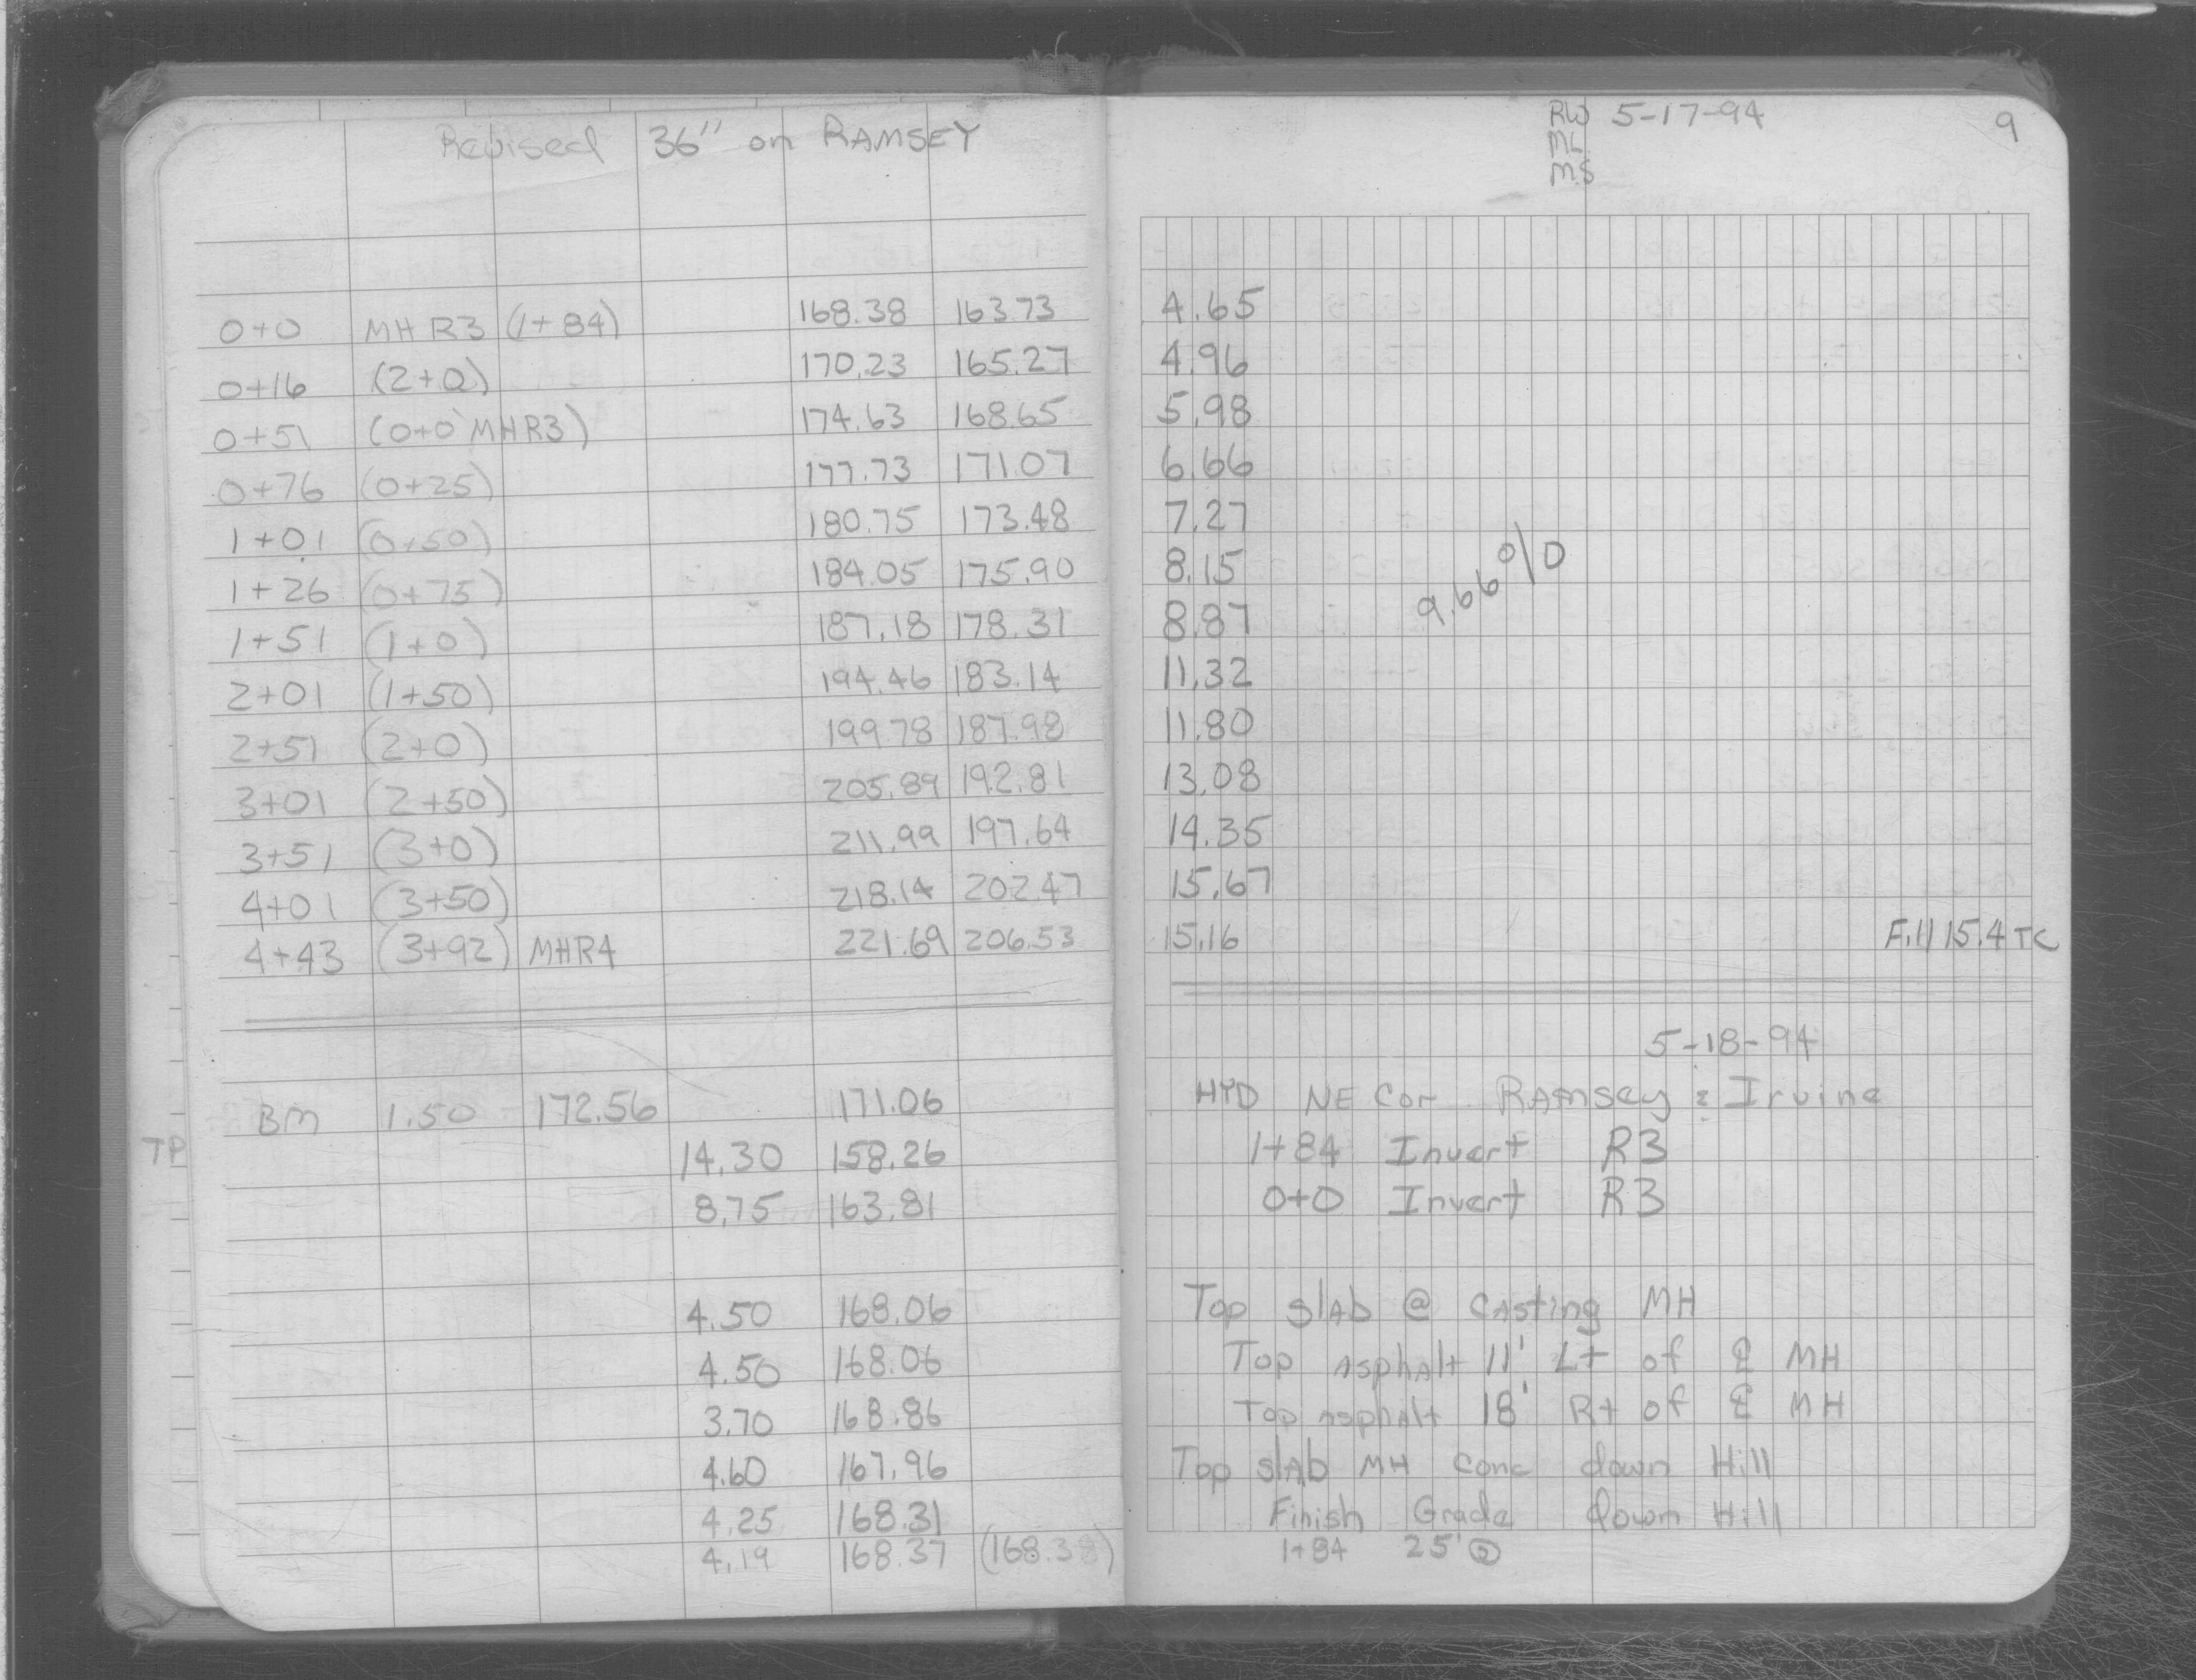 Revised 36" on RAMSEY
RW 5-17-94 9
ML
MS
0+0 MH R3 (1+84) 168.38 163.73 4.65
0+16 (2+0) 170.23 165.27 4.96
0+51 (0+0 MHR3) 174.63 168.65 5.98
0+76 (0+25) 177.73 171.07 6.66
1+01 (0+50) 180.75 173.48 7.27
1+26 (0+75) 184.05 175.90 8.15
9.66%
1+51 (1+0) 187.18 178.31 8.87
2+01 (1+50) 194.46 183.14 11.32
2+51 (2+0) 199.78 187.98 11.80
3+01 (2+50) 205.89 192.81 13.08
3+51 (3+0) 211.99 197.64 14.35
4+01 (3+50) 218.14 202.47 15.67
4+43 (3+92) MHR4 221.69 206.53 15.16 Fill 15.4 TC
5-18-94
BM 1.50 172.56 171.06 HYD NE Cor Ramsey & Irvine
TP 14.30 158.26 1+84 Invert R3
8.75 163.81 0+0 Invert R3
4.50 168.06 Top slab @ Casting MH
4.50 168.06 Top asphalt 11' Lt of ℄ MH
3.70 168.86 Top asphalt 18' Rt of ℄ MH
4.60 167.96 Top slab MH Conc down Hill
4.25 168.31 Finish Grade down Hill
4.19 168.37 (168.38) 1+84 25'